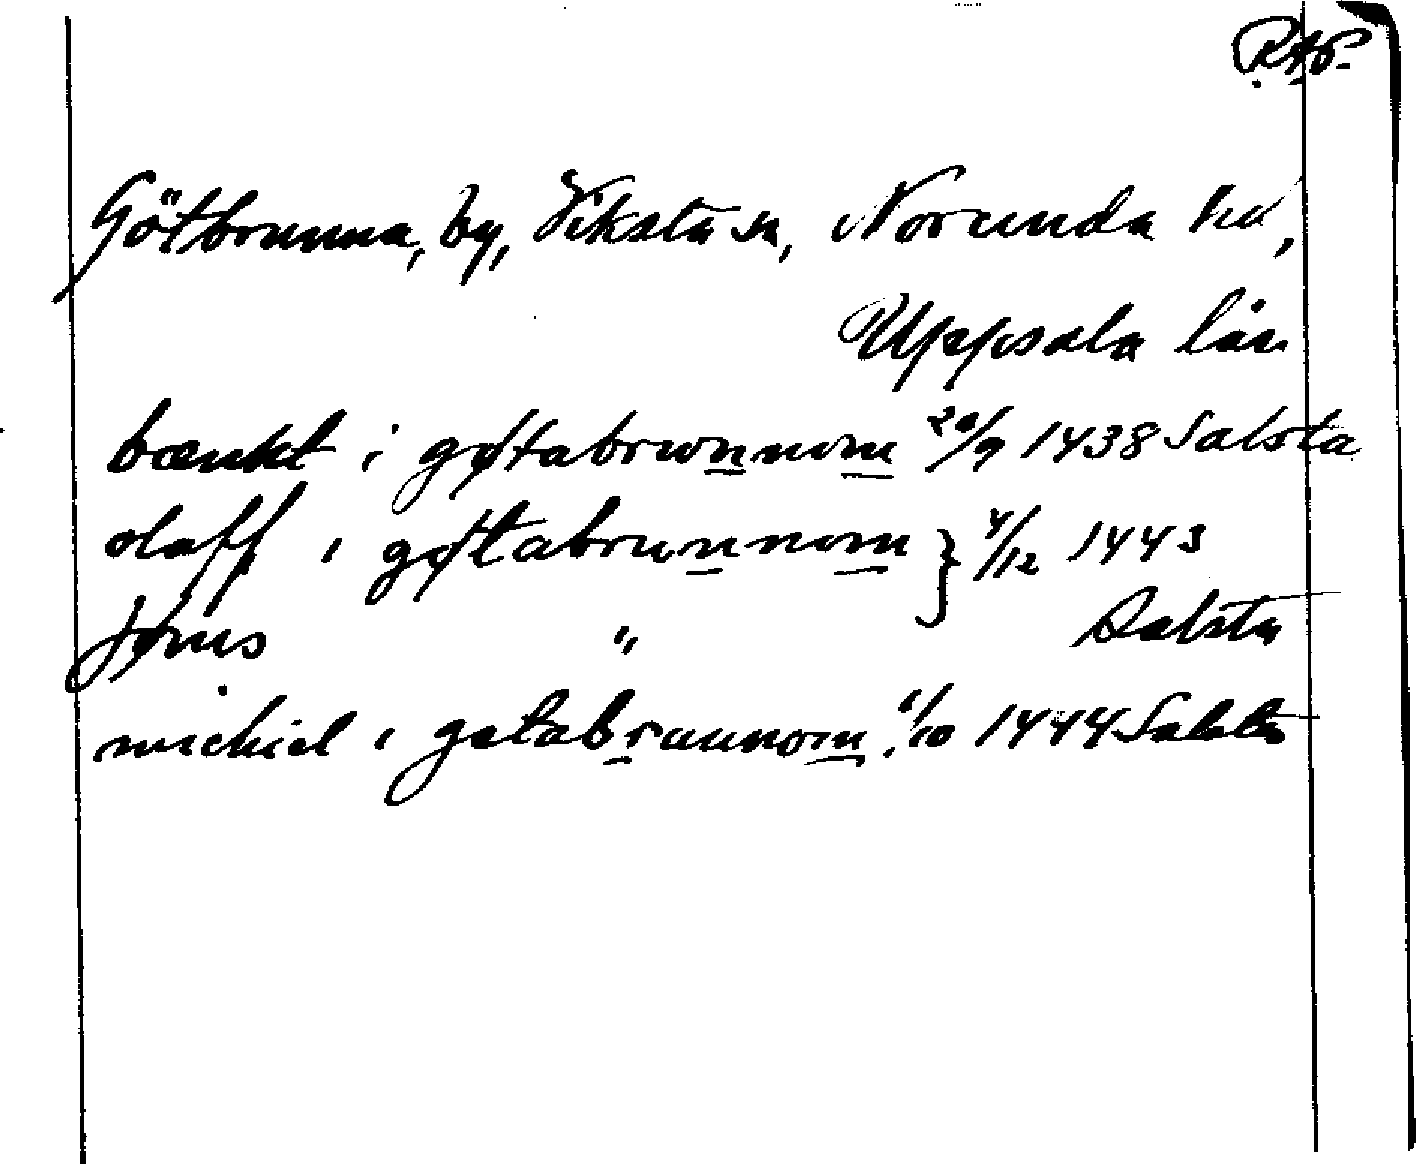 RAP.
Götbrunna, by, Viksta sn, Norunda hd,
Uppsala län
bænkt i gøtabrwnnom 20/9 1438 Salsta
olaff i gøtabrunnom } 4/12 1443
jønis " Salsta
michiel i gotabrunnom 1/10 1444 Salsta